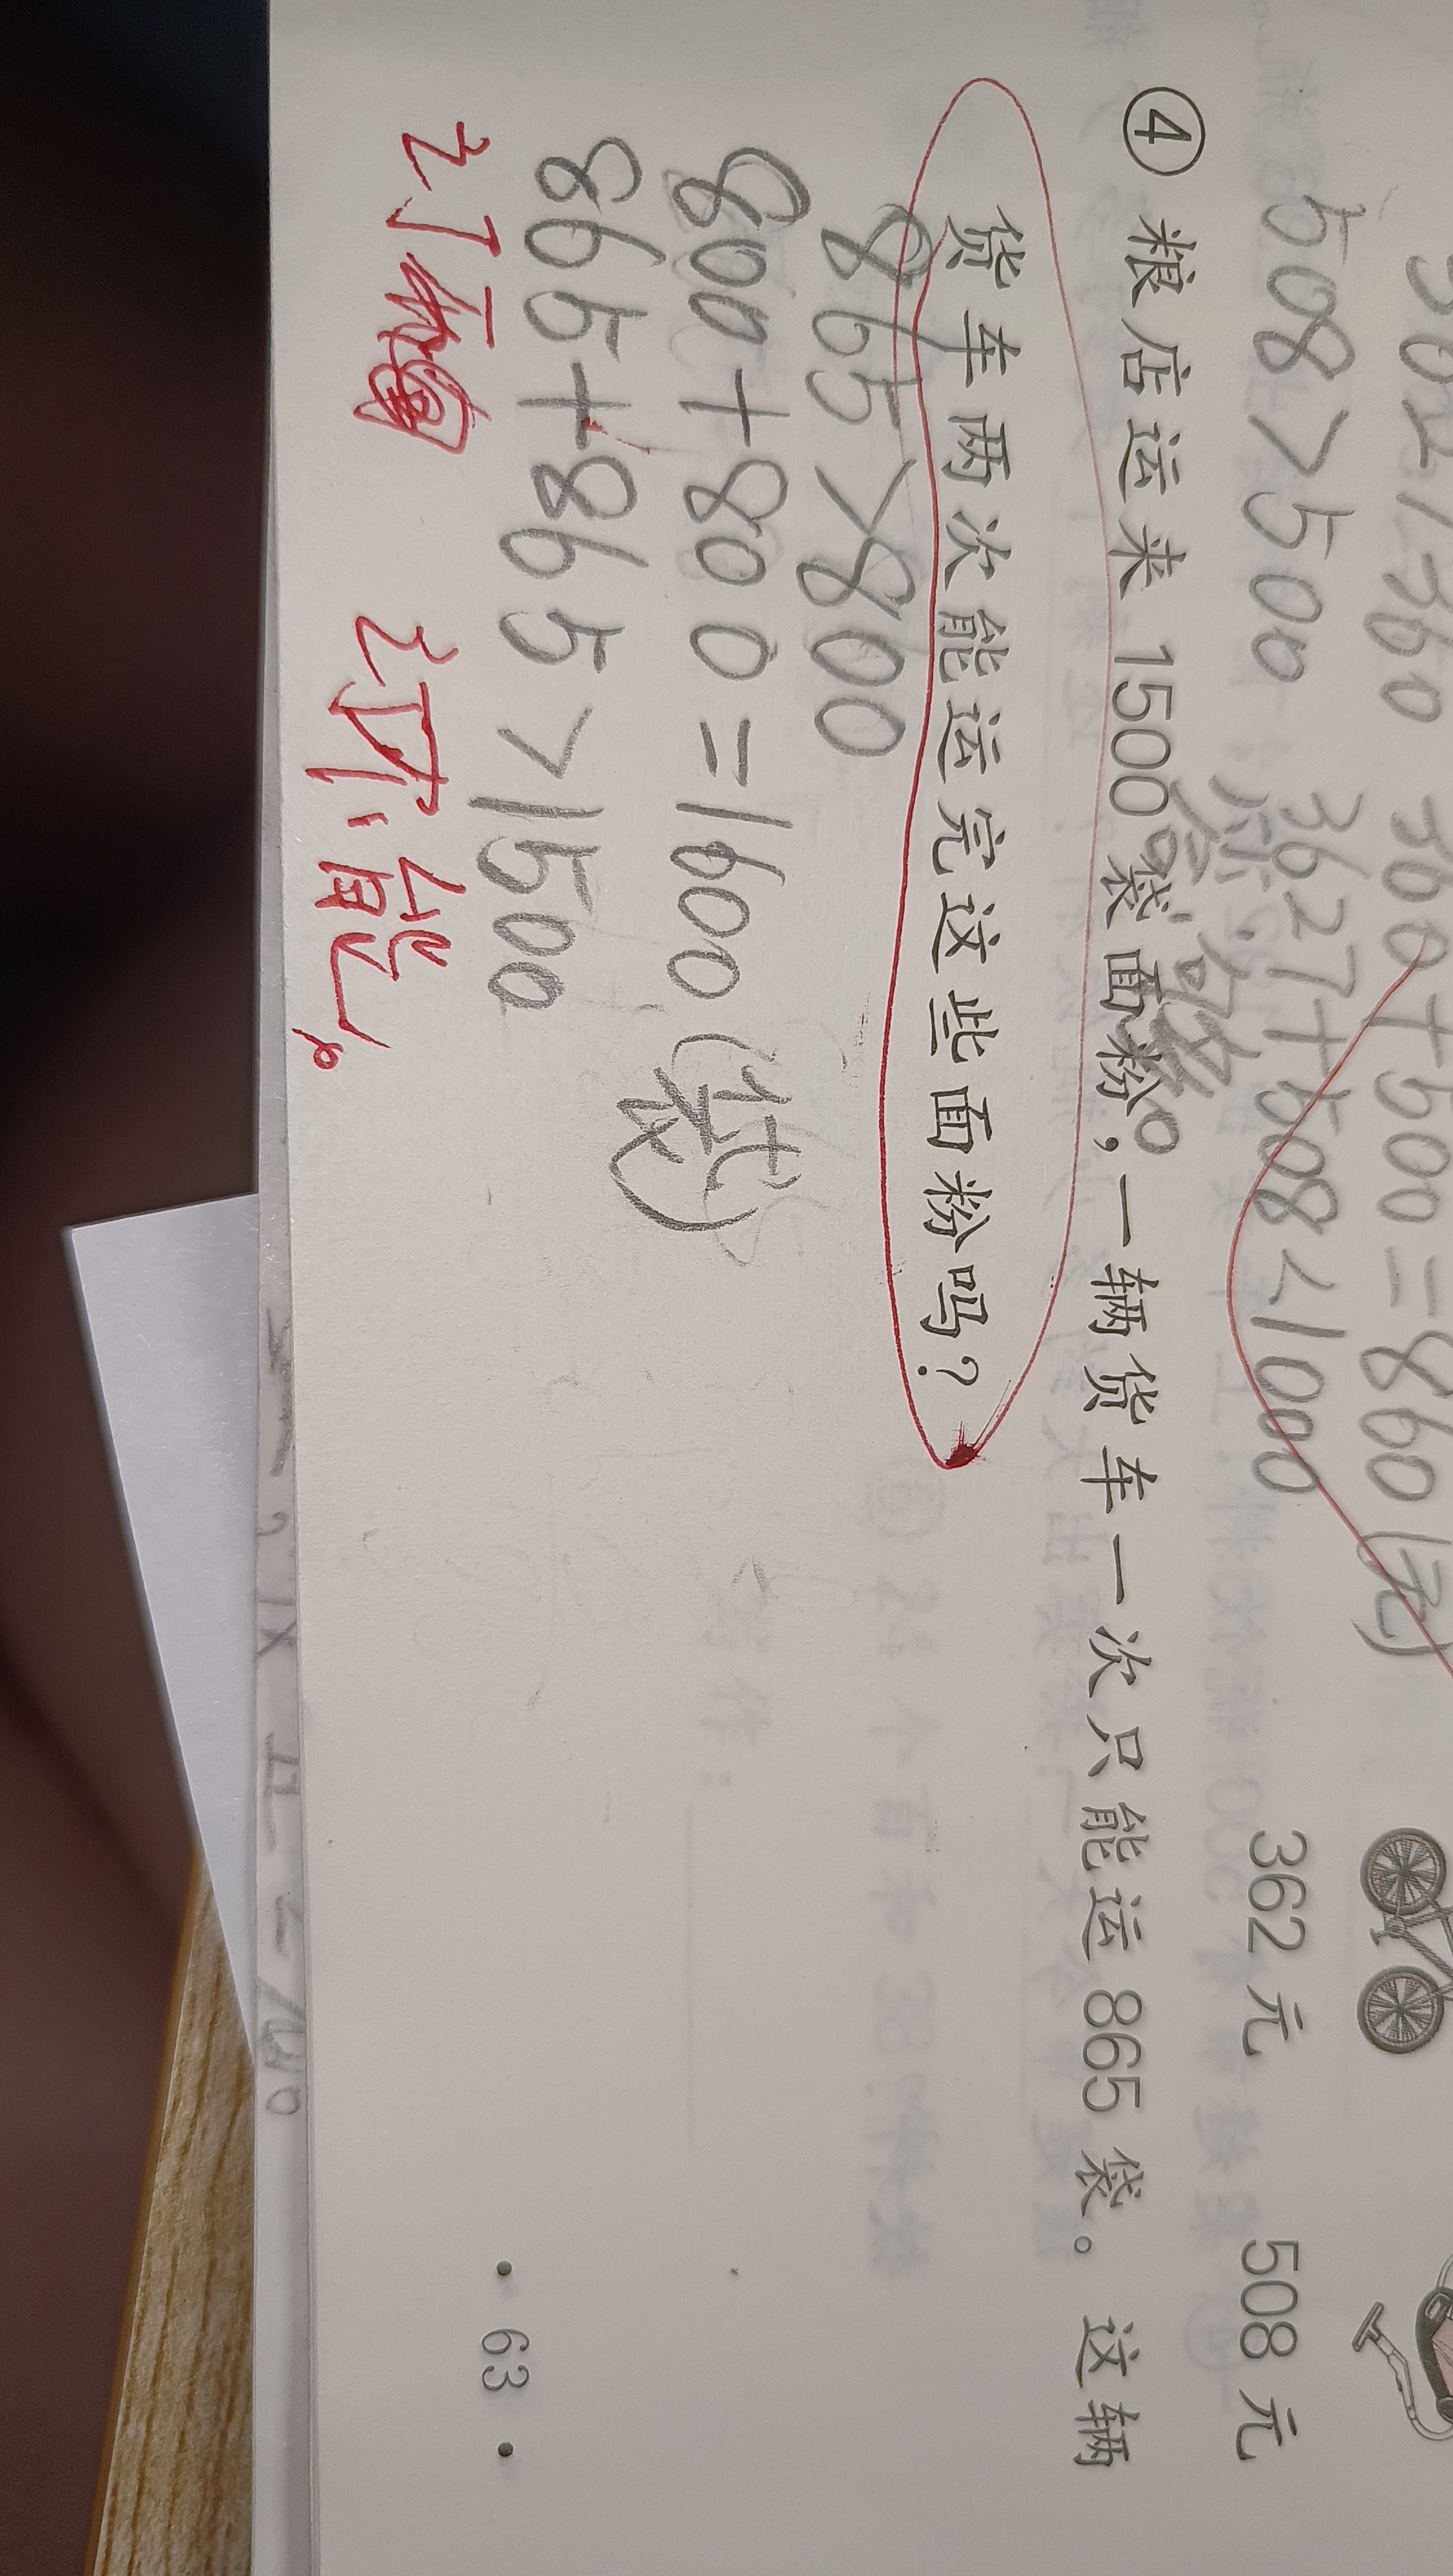 362>360 360+500=860(元)
508>500 362+508<1000
362元 508元
④ 粮店运来1500袋面粉，一辆货车一次只能运865袋。这辆
货车两次能运完这些面粉吗？
865>800
800+800=1600(袋)
865+865>1500
不能。
·63·